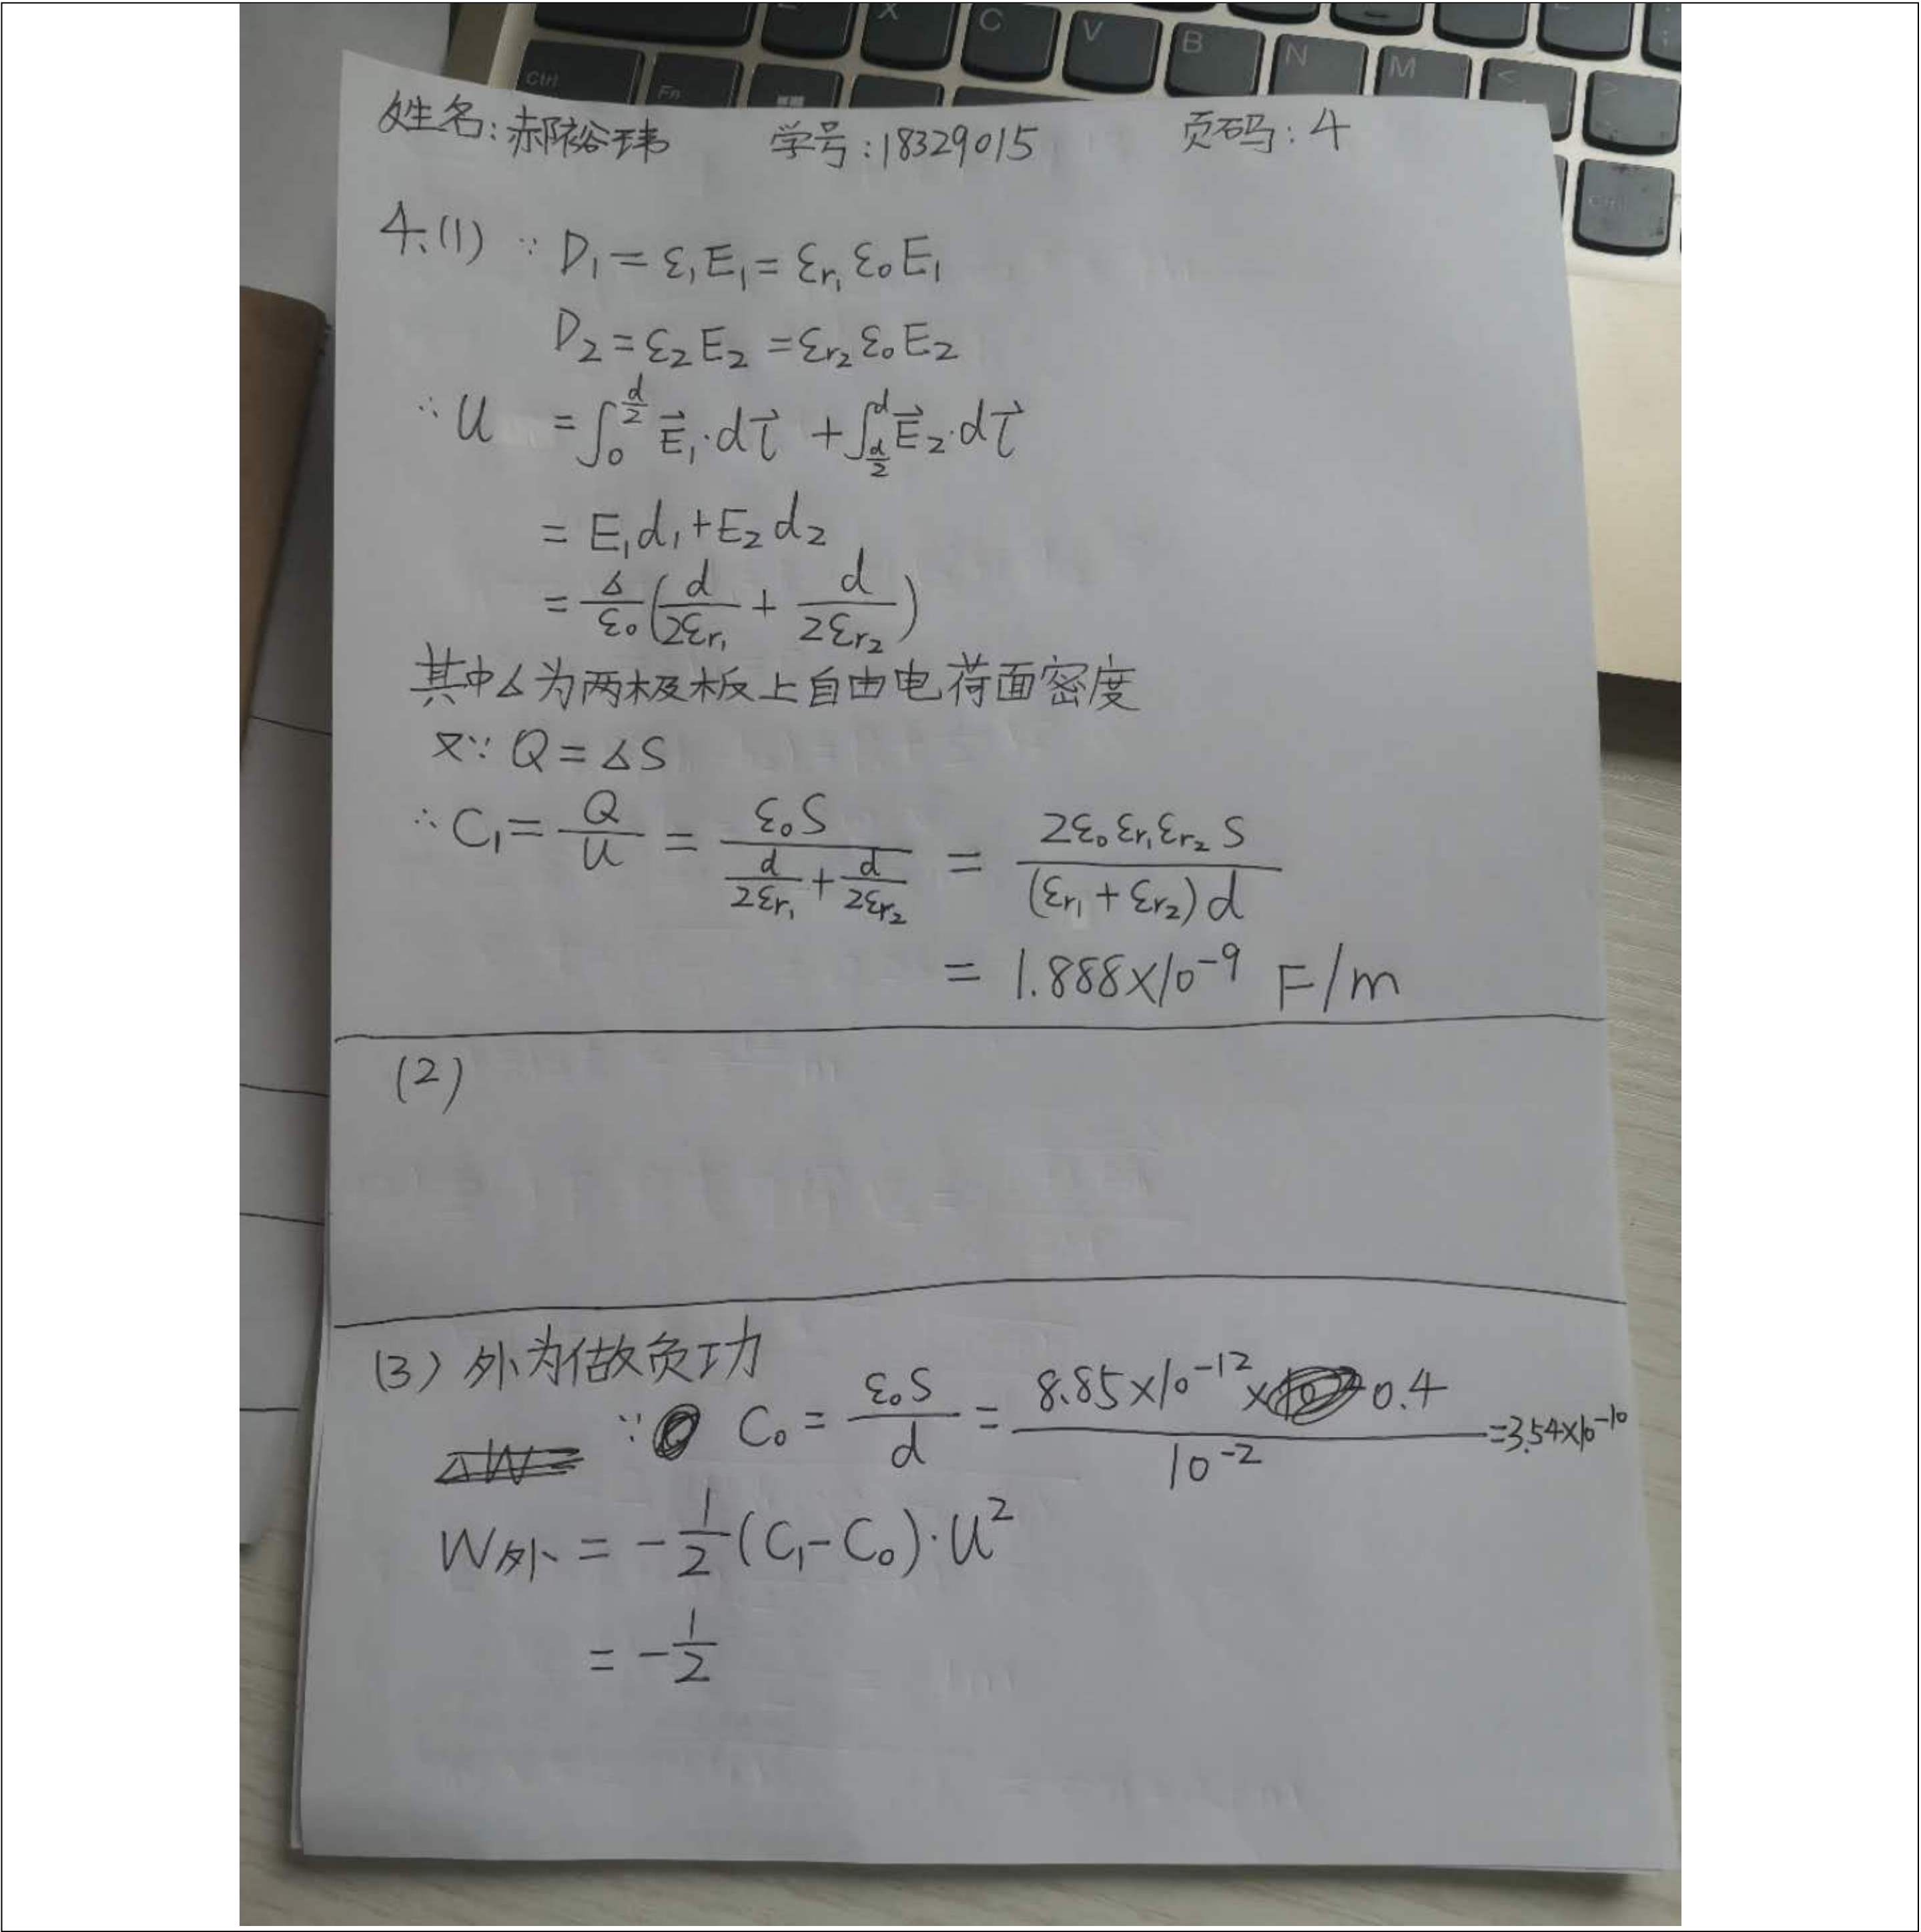 X C V B N M <
Ctrl Fn >
Ctrl
姓名:郝裕玮 学号:18329015 页码:4
4、(1) ∵ D₁ = ε₁E₁ = εr₁ε₀E₁
D₂ = ε₂E₂ = εr₂ε₀E₂
∴ U = ∫₀^(d/2) E⃗₁·dl⃗ + ∫_(d/2)^d E⃗₂·dl⃗
= E₁d₁+E₂d₂
= δ/ε₀ (d/(2εr₁) + d/(2εr₂))
其中δ为两极板上自由电荷面密度
又∵ Q = δS
∴ C₁ = Q/U = ε₀S/(d/(2εr₁) + d/(2εr₂)) = 2ε₀εr₁εr₂S/((εr₁+εr₂)d)
= 1.888×10⁻⁹ F/m
(2)
(3) 外为做负功
∵ C₀ = ε₀S/d = 8.85×10⁻¹²×0.4/10⁻² =3.54×10⁻¹⁰
W外 = -1/2(C₁-C₀)·U²
= -1/2